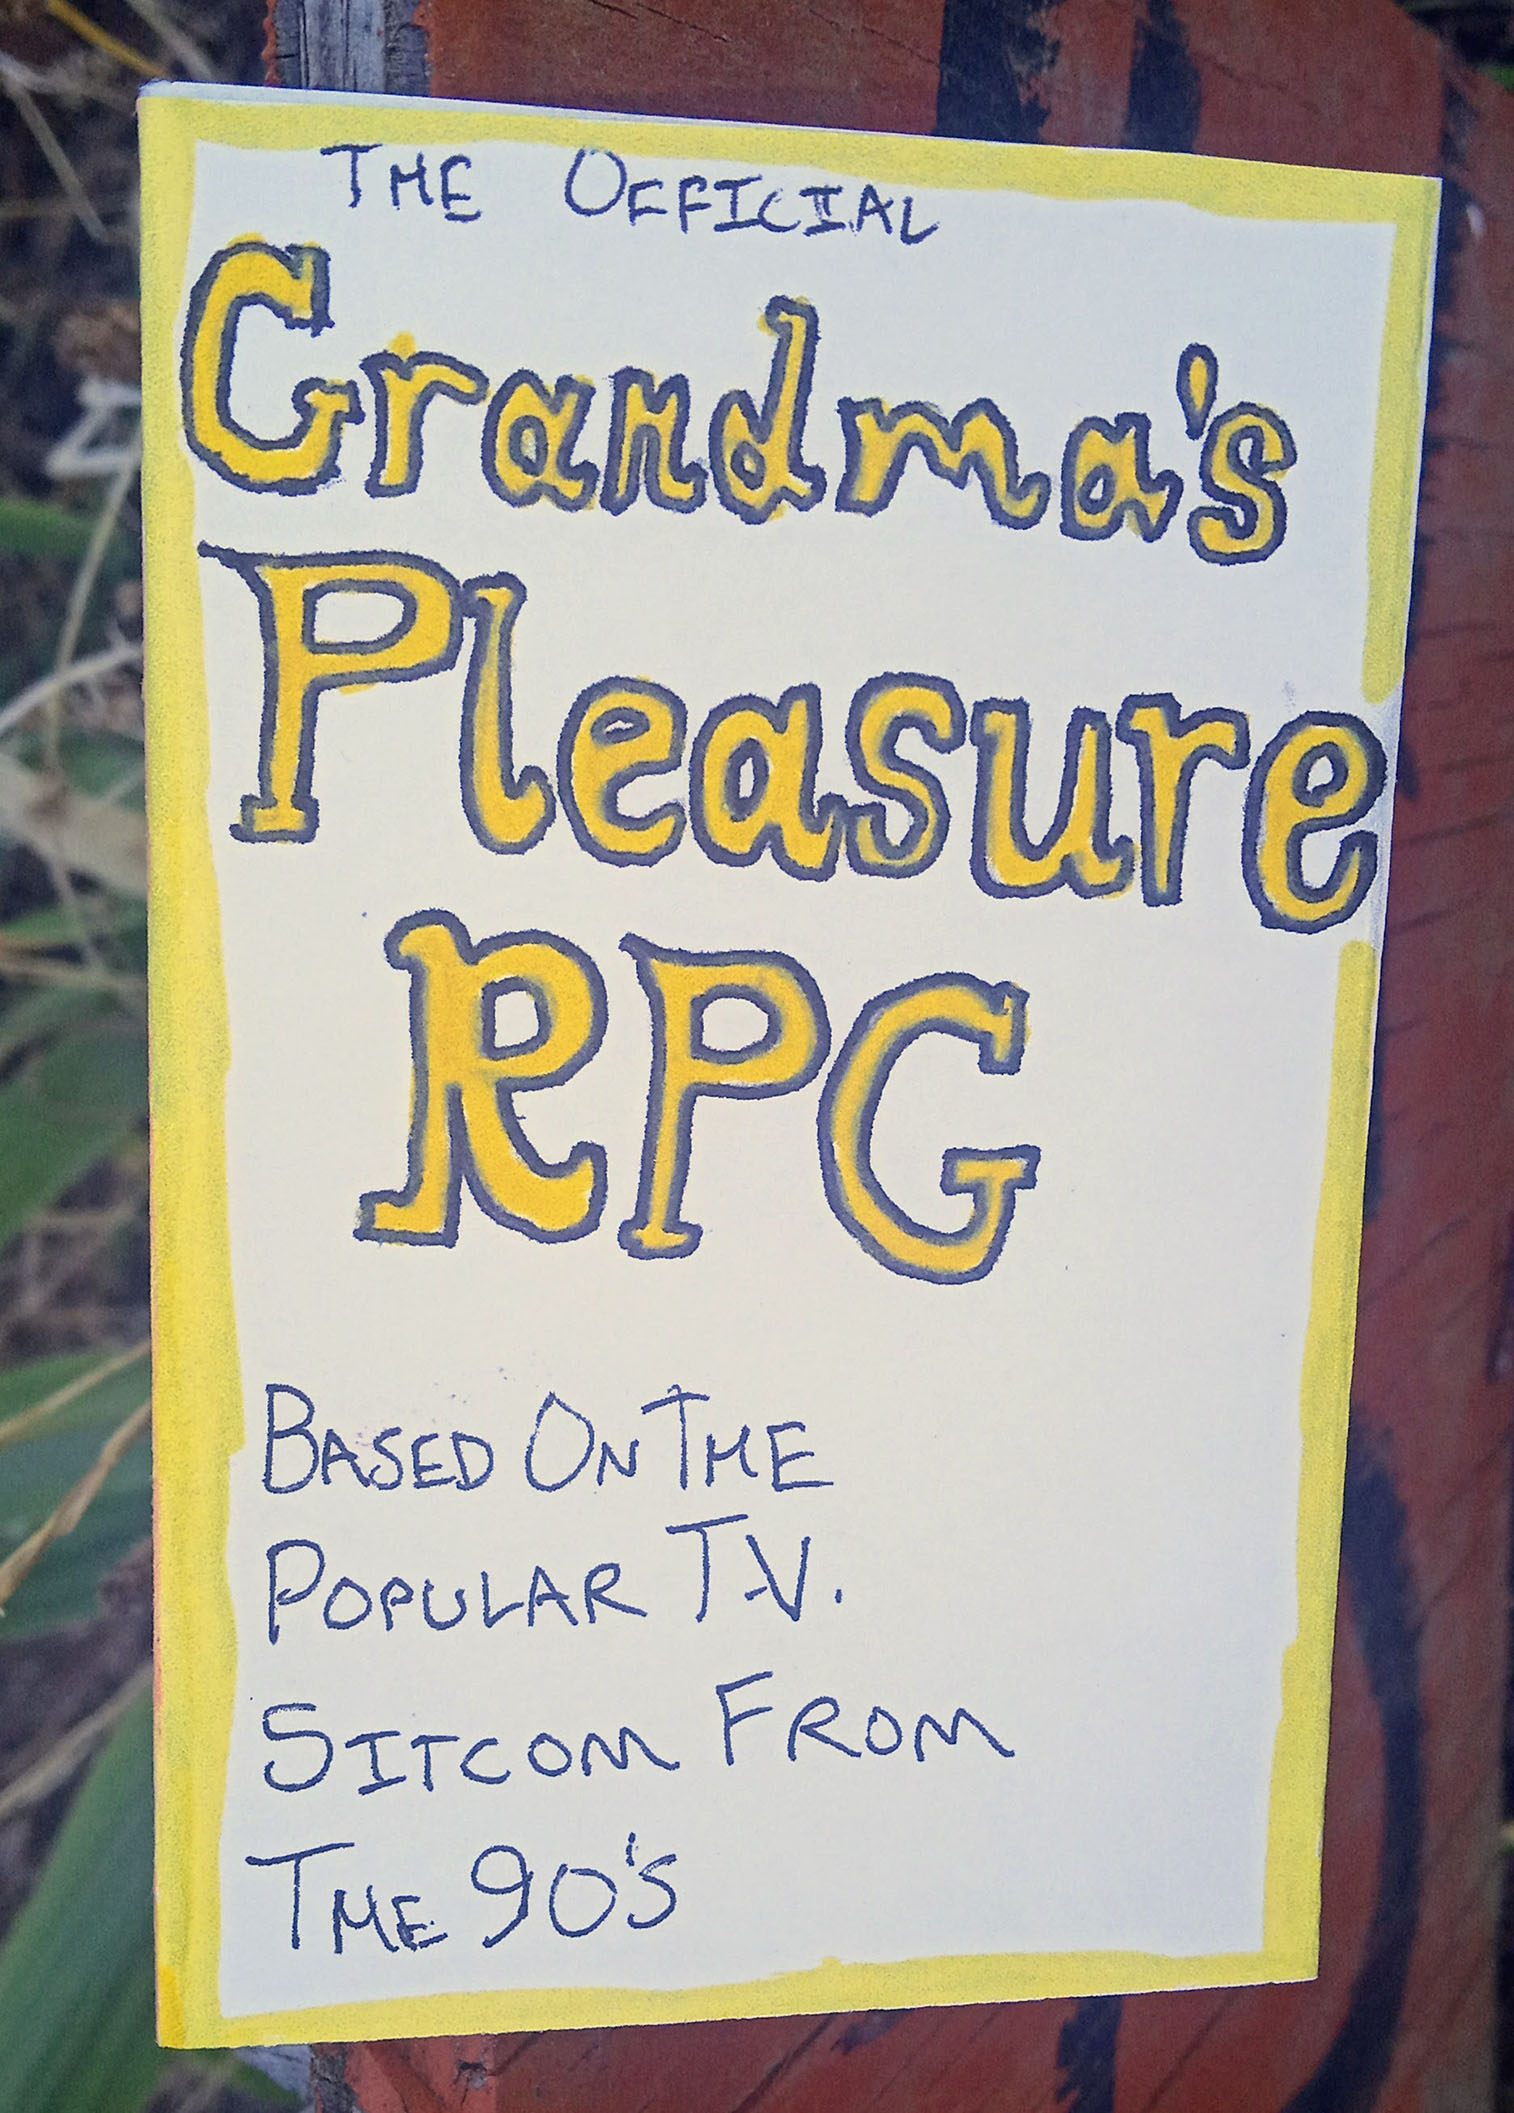 THE OFFICIAL
Grandma's
Pleasure
RPG
BASED ON THE
POPULAR T.V.
SITCOM FROM
THE 90's